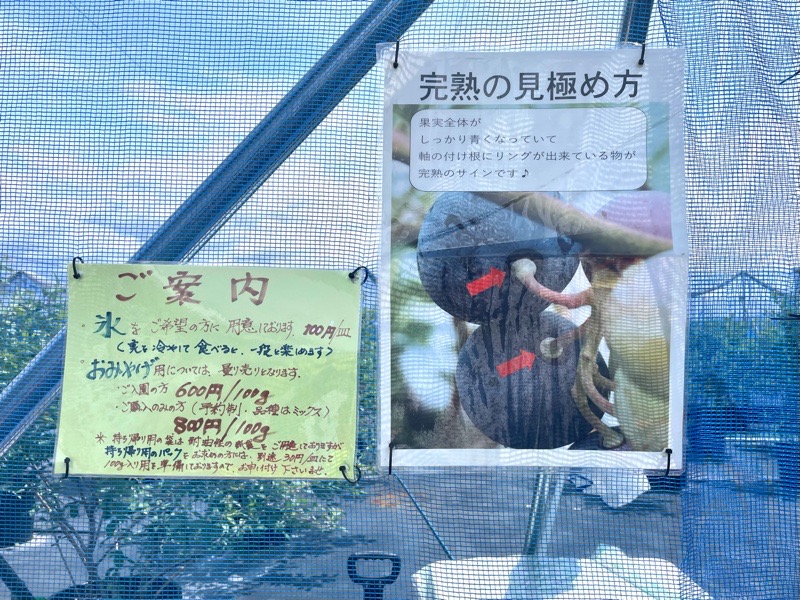 完熟の見極め方
果実全体が
しっかり青くなっていて
軸の付け根にリングが出来ている物が
完熟のサインです♪
ご案内
氷をご希望の方に用意しております。100円/皿
(実を冷やして食べると、一段と楽しめます)
おみやげ用については、量り売りとなります。
・ご入園の方 600円/100g
・ご購入のみの方(予約制・品種はミックス)
800円/100g
※持ち帰り用の袋は耐油性の紙袋をご用意しておりますが
持ち帰り用のパックをお求めの方には、別途30円/皿にて
100g入り用を準備しておりますので、お申し付け下さいませ。